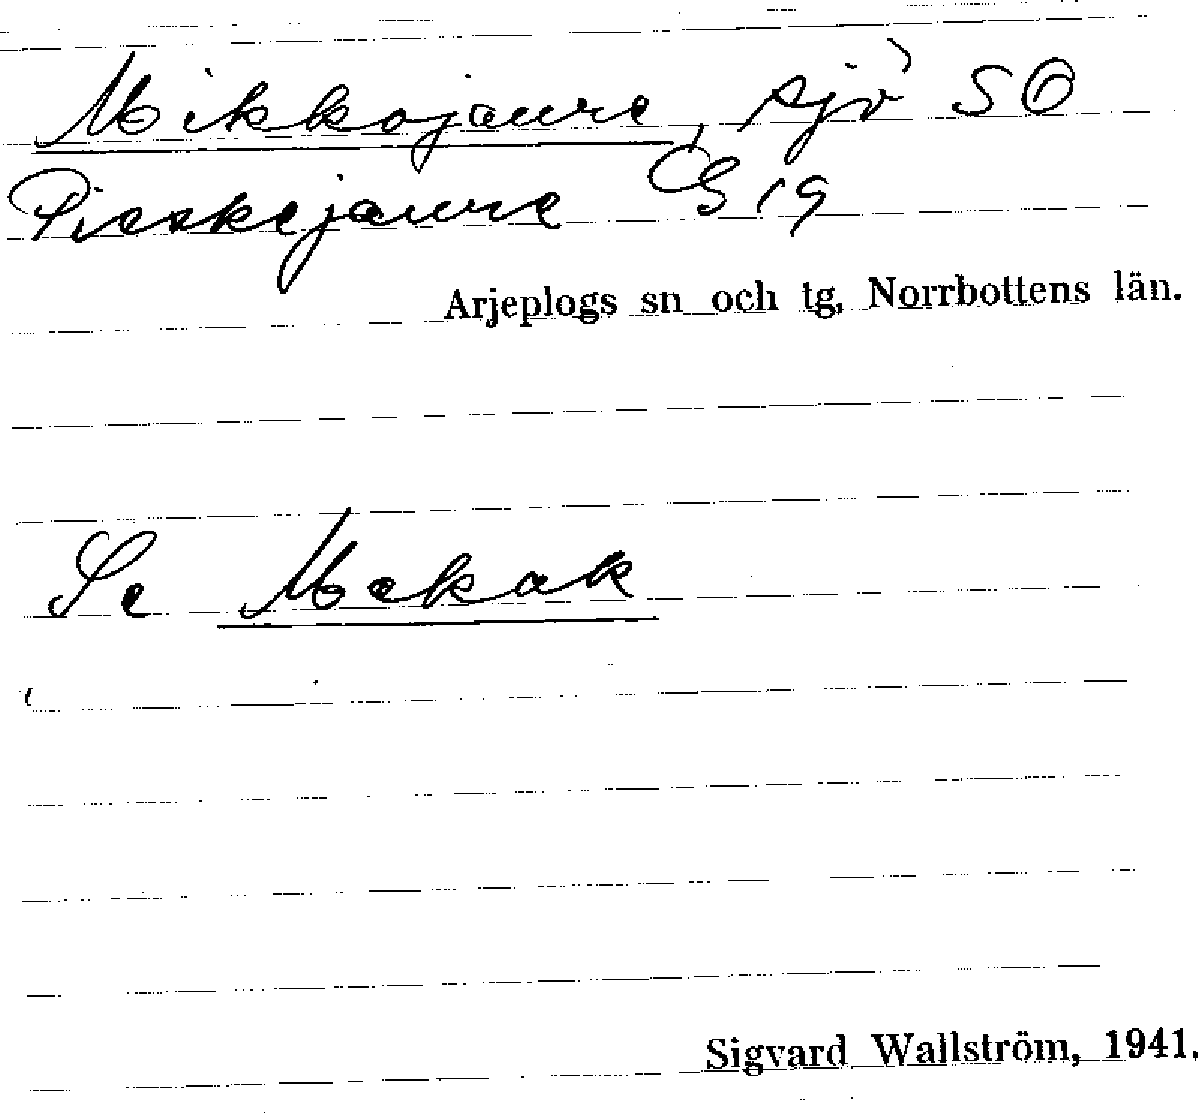 Mikkojaure, sjö SO
Pieskejaure G 19
Arjeplogs sn och tg, Norrbottens län.
Se Mekak
Sigvard Wallström, 1941.